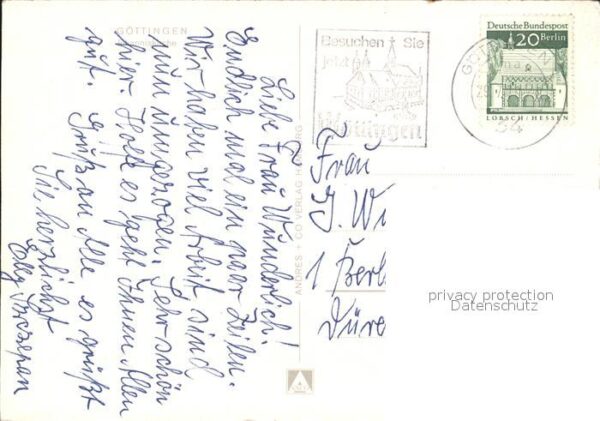 GÖTTINGEN
Liebe Frau Wunderlich!
Endlich mal ein paar Zeilen.
Wir haben viel Arbeit sind
nun umgezogen. Sehr schön
hier. Hoffe es geht Ihnen Allen
gut. Grüß an Alle es grüßt
Sie herzlichst
Elly
ANDRES + CO VERLAG HAMBURG
Besuchen Sie
jetzt
Göttingen
Deutsche Bundespost
20 Berlin
LORSCH/HESSEN
34
Frau
J. Wi
1 Berl
Düre
privacy protection
Datenschutz